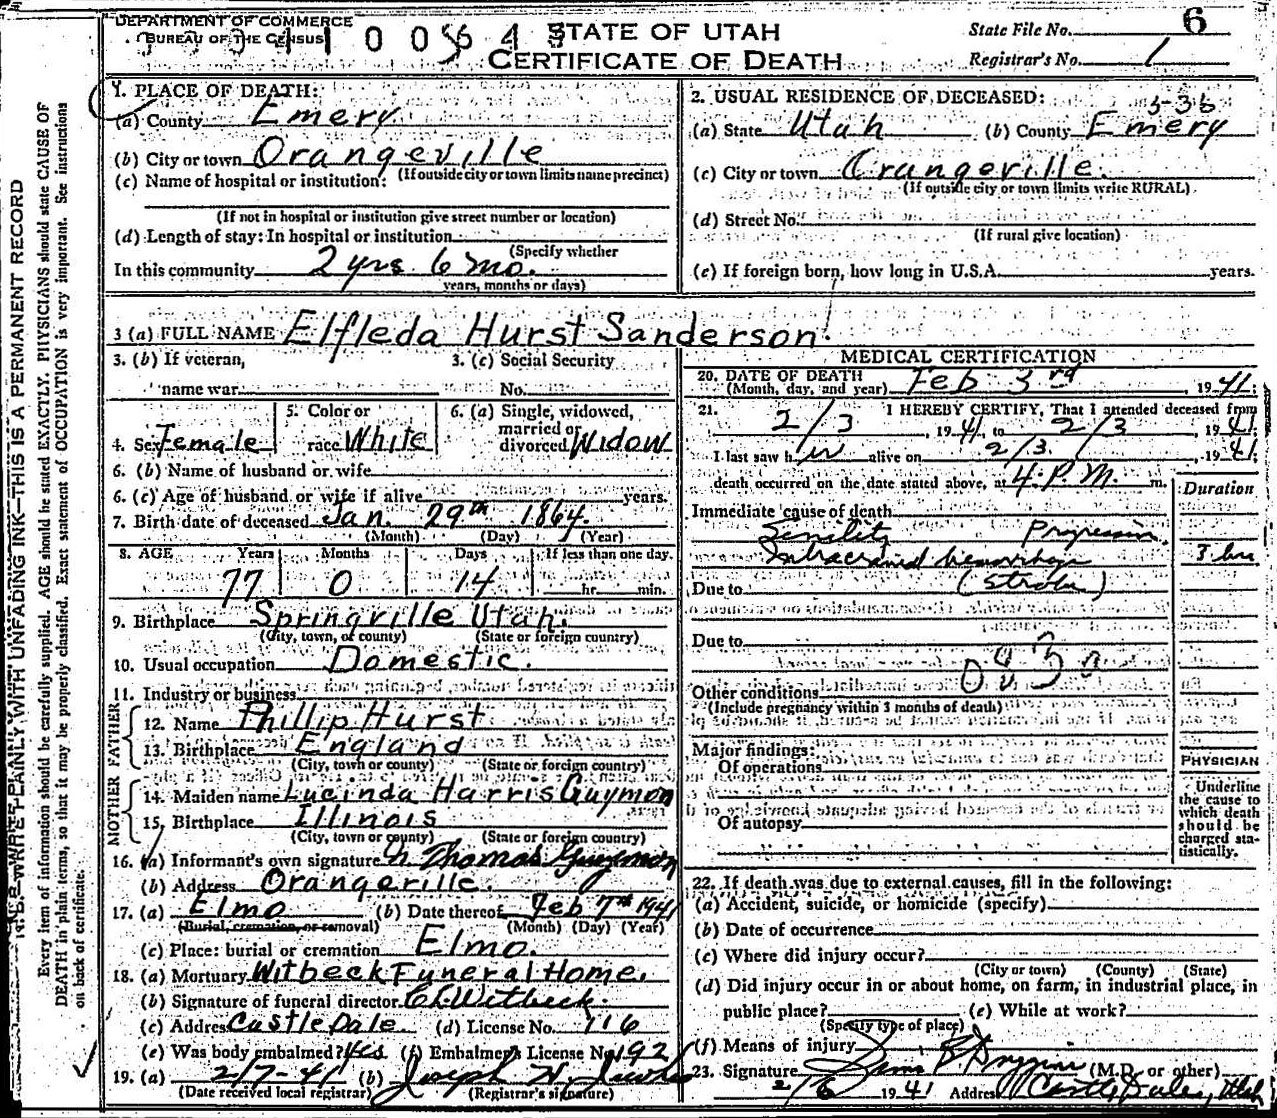 DEPARTMENT OF COMMERCE
BUREAU OF THE CENSUS
STATE OF UTAH
CERTIFICATE OF DEATH
State File No. 6
Registrar's No. 1
1. PLACE OF DEATH:
(a) County Emery
(b) City or town Orangeville
(If outside city or town limits name precinct)
(c) Name of hospital or institution:
(If not in hospital or institution give street number or location)
(d) Length of stay: In hospital or institution
(Specify whether
In this community 2 yrs. 6 mo.
years, months or days)
2. USUAL RESIDENCE OF DECEASED:
(a) State Utah (b) County Emery
(c) City or town Orangeville.
(If outside city or town limits write RURAL)
(d) Street No.
(If rural give location)
(e) If foreign born, how long in U.S.A. years.
3 (a) FULL NAME Elfleda Hurst Sanderson.
3. (b) If veteran,
name war
3. (c) Social Security
No.
4. Sex Female
5. Color or
race White
6. (a) Single, widowed,
married or
divorced Widow
6. (b) Name of husband or wife
6. (c) Age of husband or wife if alive years.
7. Birth date of deceased Jan. 29th 1864.
(Month) (Day) (Year)
8. AGE Years Months Days If less than one day.
77 0 14 hr. min.
9. Birthplace Springville Utah.
(City, town, or county) (State or foreign country)
10. Usual occupation Domestic.
11. Industry or business
FATHER
12. Name Phillip Hurst
13. Birthplace England
(City, town or county) (State or foreign country)
MOTHER
14. Maiden name Lucinda Harris Guymon
15. Birthplace Illinois
(City, town or county) (State or foreign country)
16. (a) Informant's own signature Thomas Guymon
(b) Address Orangeville.
17. (a) Elmo (b) Date thereof Feb 7th 1941
(Burial, cremation, or removal) (Month) (Day) (Year)
(c) Place: burial or cremation Elmo.
18. (a) Mortuary Witbeck Funeral Home.
(b) Signature of funeral director Witbeck.
(c) Address Castle Dale. (d) License No. 116
(e) Was body embalmed? Yes (f) Embalmer's License No. 192
19. (a) 2/7-41 (b) Joseph
(Date received local registrar) (Registrar's signature)
MEDICAL CERTIFICATION
20. DATE OF DEATH
(Month, day, and year) Feb 3rd, 1941.
21. I HEREBY CERTIFY, That I attended deceased from
2/3, 1941 to 2/3, 1941.
I last saw her alive on 2/3., 1941;
death occurred on the date stated above, at 4. P.M. m.
Duration
Immediate cause of death
Senility
Intracranial hemorrhage 3 hrs
Due to (Stroke)
Due to
Other conditions
(Include pregnancy within 3 months of death)
Major findings:
Of operations
Of autopsy
PHYSICIAN
Underline
the cause to
which death
should be
charged sta-
tistically.
22. If death was due to external causes, fill in the following:
(a) Accident, suicide, or homicide (specify)
(b) Date of occurrence
(c) Where did injury occur?
(City or town) (County) (State)
(d) Did injury occur in or about home, on farm, in industrial place, in
public place? (e) While at work?
(Specify type of place)
(f) Means of injury
23. Signature (M.D. or other)
2/6 1941 Address Castle Dale, Utah
N.B.—WRITE PLAINLY, WITH UNFADING INK—THIS IS A PERMANENT RECORD
Every item of information should be carefully supplied. AGE should be stated EXACTLY. PHYSICIANS should state CAUSE OF
DEATH in plain terms, so that it may be properly classified. Exact statement of OCCUPATION is very important. See instructions
on back of certificate.